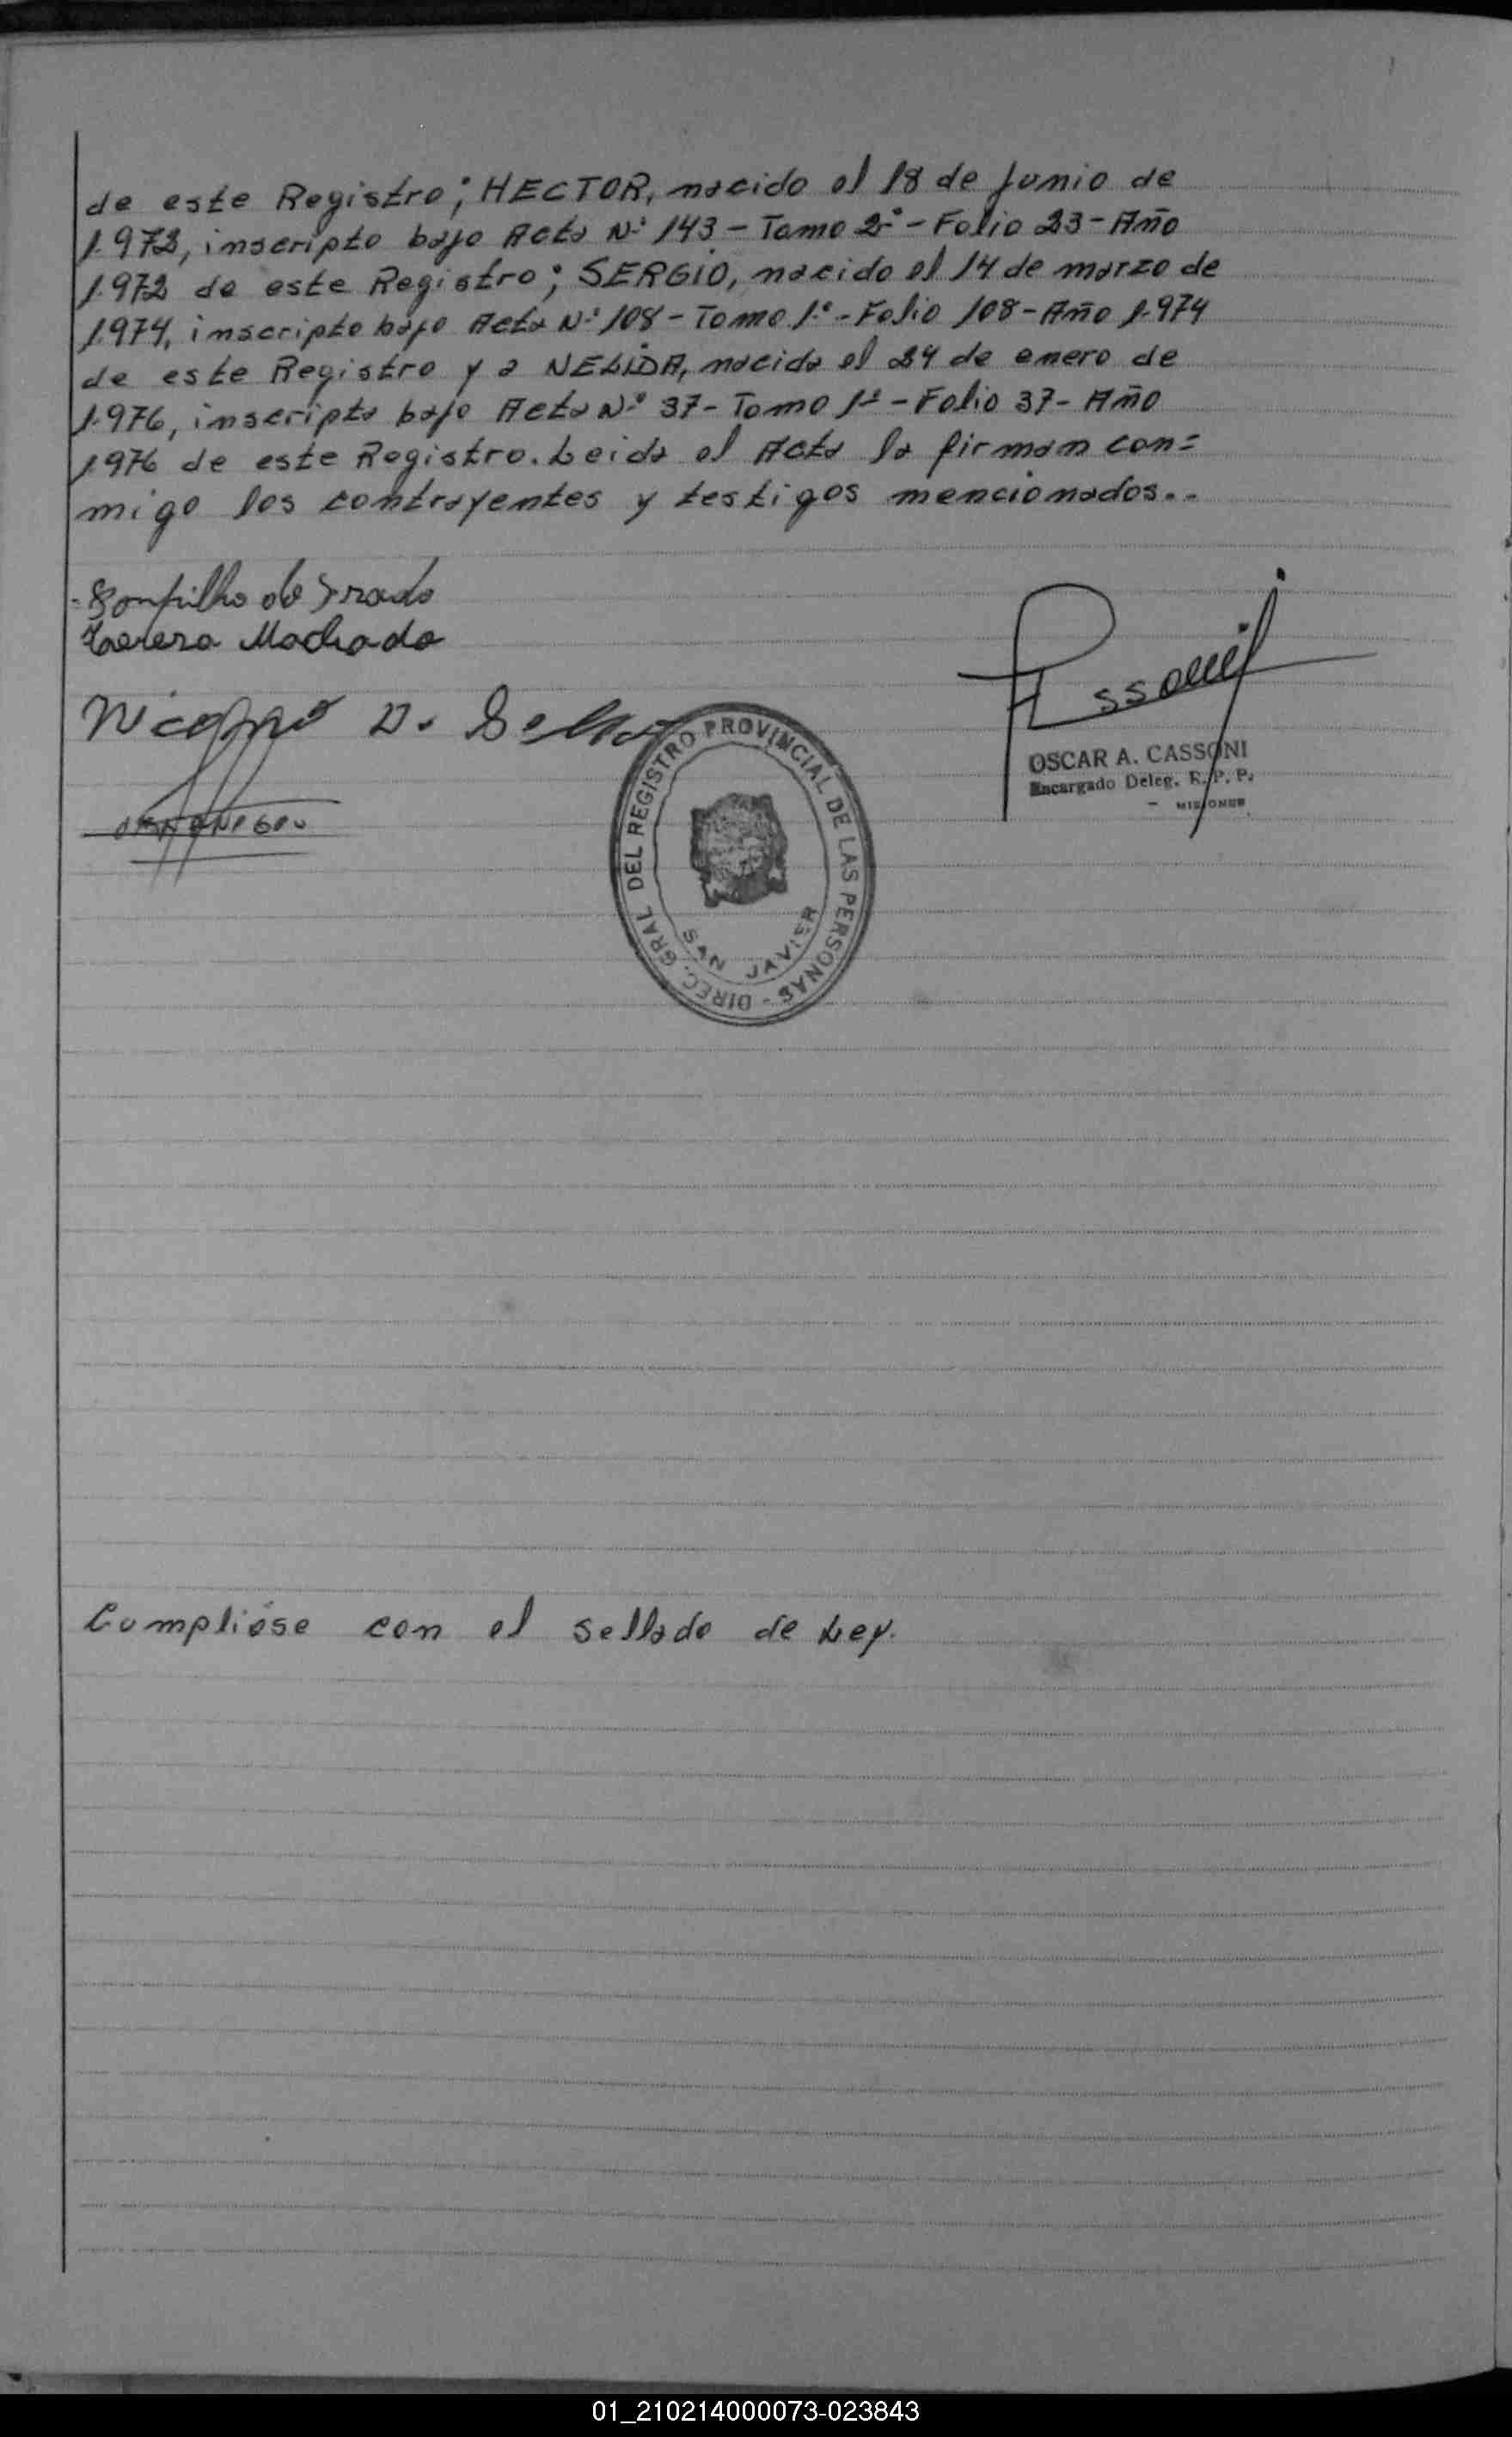 de este Registro; HECTOR, nacido el 18 de Junio de
1.972, inscripto bajo Acta Nº 143 - Tomo 2º - Folio 23 - Año
1.972 de este Registro; SERGIO, nacido el 14 de marzo de
1.974, inscripto bajo Acta Nº 108 - Tomo 1º - Folio 108 - Año 1.974
de este Registro y a NELIDA, nacida el 24 de enero de
1.976, inscripta bajo Acta Nº 37 - Tomo 1º - Folio 37 - Año
1.976 de este Registro. Leida el Acta la firman con=
migo los contrayentes y testigos mencionados..
Machado
D.
OSCAR A. CASSONI
Encargado Deleg. R. P. P.
- MISIONES
DIREC. GRAL DEL REGISTRO PROVINCIAL DE LAS PERSONAS -
SAN JAVIER
Cumplióse con el sellado de Ley.
01_210214000073-023843